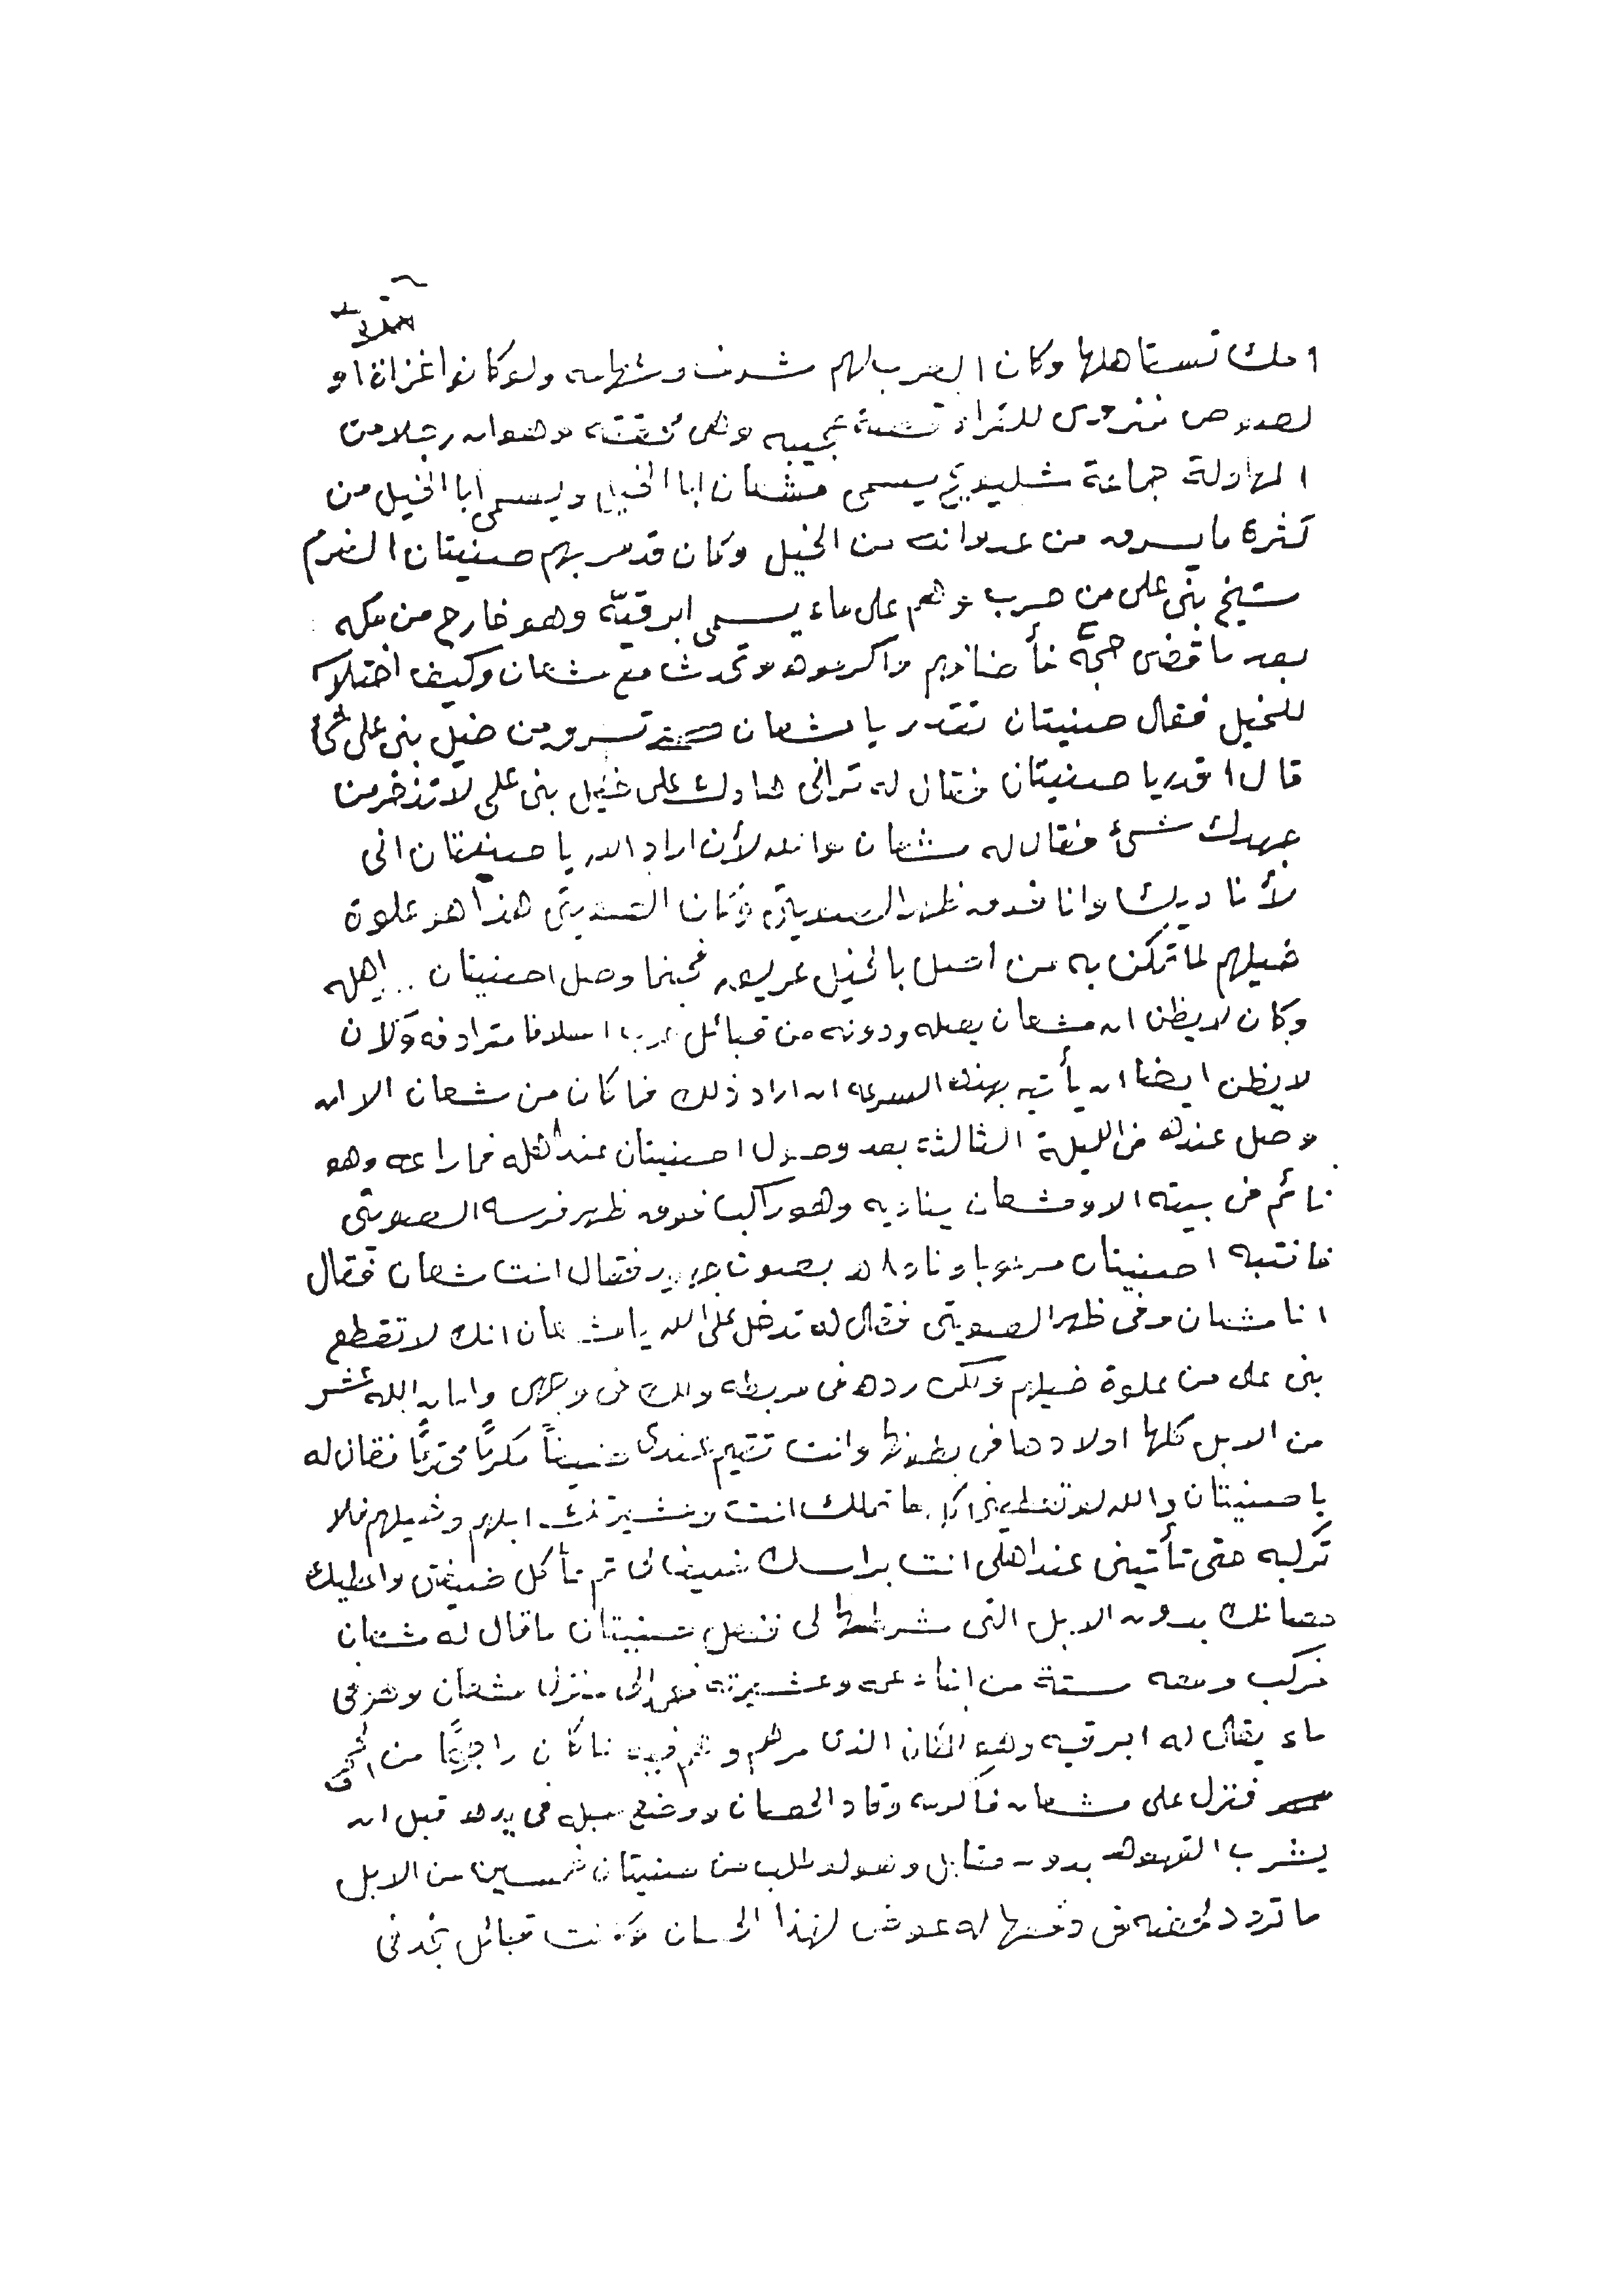 امك تستاهلها وكان العرب لهم شرف وشهامه ولو كانوا غزاة او
لصوص فنروى للقراء قصة عجيبه وهى ثقته وهو ان رجلا من
المهادلة جماعة شليويح يسمى مشعان ابا الخيل ويسمى ابا الخيل من
كثرة ما يسرق من عدوانه من الخيل وكان قد مر بهم صنيتان الضرم
شيخ بنى على من حرب وهم على ماء يسمى ابرقيّه وهو خارج من مكه
بعد ما قضى حجّه فأضافوهم واكرموهم وتحدث مع مشعان وكيف اختلاسه
للخيل فقال صنيتان تقدر يا مشعان تسرق من خيل بنى على شئ
قال اقدر يا صنيتان فقال له ترانى هادك على خيل بنى على لا تذخر من
جهدك شئ فقال له مشعان والله لأن اراد الله يا صنيتان انى
لأناديك وانا فوق ظهر الصويتى وكان الصويتى هذا هو علوة
خيلهم لما تمكن به من اصل بالخيل عريق فحينما وصل اصنيتان اهله
وكان لا يظن ان مشعان يصله ودونه من قبائل حرب اسلافا مترادفه وكان
لا يظن ايضا ان يأتيه بهذه السرعه ان اراد ذلك فما كان من مشعان الا ان
وصل عنده فى الليلة الثالثة بعد وصول اصنيتان عند اهله فما راعه وهو
نائم فى بيته الا ومشعان يناديه وهو راكبا فوق ظهر فرسه الصويتى
فانتبه اصنيتان مرعوبا وناداه بصوت جهير فقال انت مشعان فقال
انا مشعان وفى ظهر الصويتى فقال له تدخل على الله يا مشعان انك لا تقطع
بنى على من علوة خيلهم ولكن رده فى مربطه ولك فى وجهى وامان الله عشر
من الابل كلها اولادها فى بطونها وانت تقيم عندى ضيفاً مكرماً محترماً فقال له
يا صنيتان والله لو تعطينى كل ما تملك انت وعشيرتك ابلهم وخيلهم فلا
تركبه حتى تأتينى عند اهلى انت براسك ضيفا لى ثم تأكل ضيفتى واعطيك
حصانك بدون الابل التى شرطتها لى ففعل صنيتان ما قال له مشعان
فركب ومعه ستة من ابناء عمه وعشيرته فوصل الى منزل مشعان وهو فى
ماء يقال له ابرقيه وهو المكان الذى مرهم وهم فيه لما كان راجعًا من الحج
فنزل على مشعان فأكرمه وقاد الحصان ووضع حبله فى يده قبل ان
يشرب القهوه بدون مقابل وهو لو طلب من صنيتان خمسين من الابل
ما تردد دفعها له عوض لهذا الحصان وكانت قبائل نجد فى